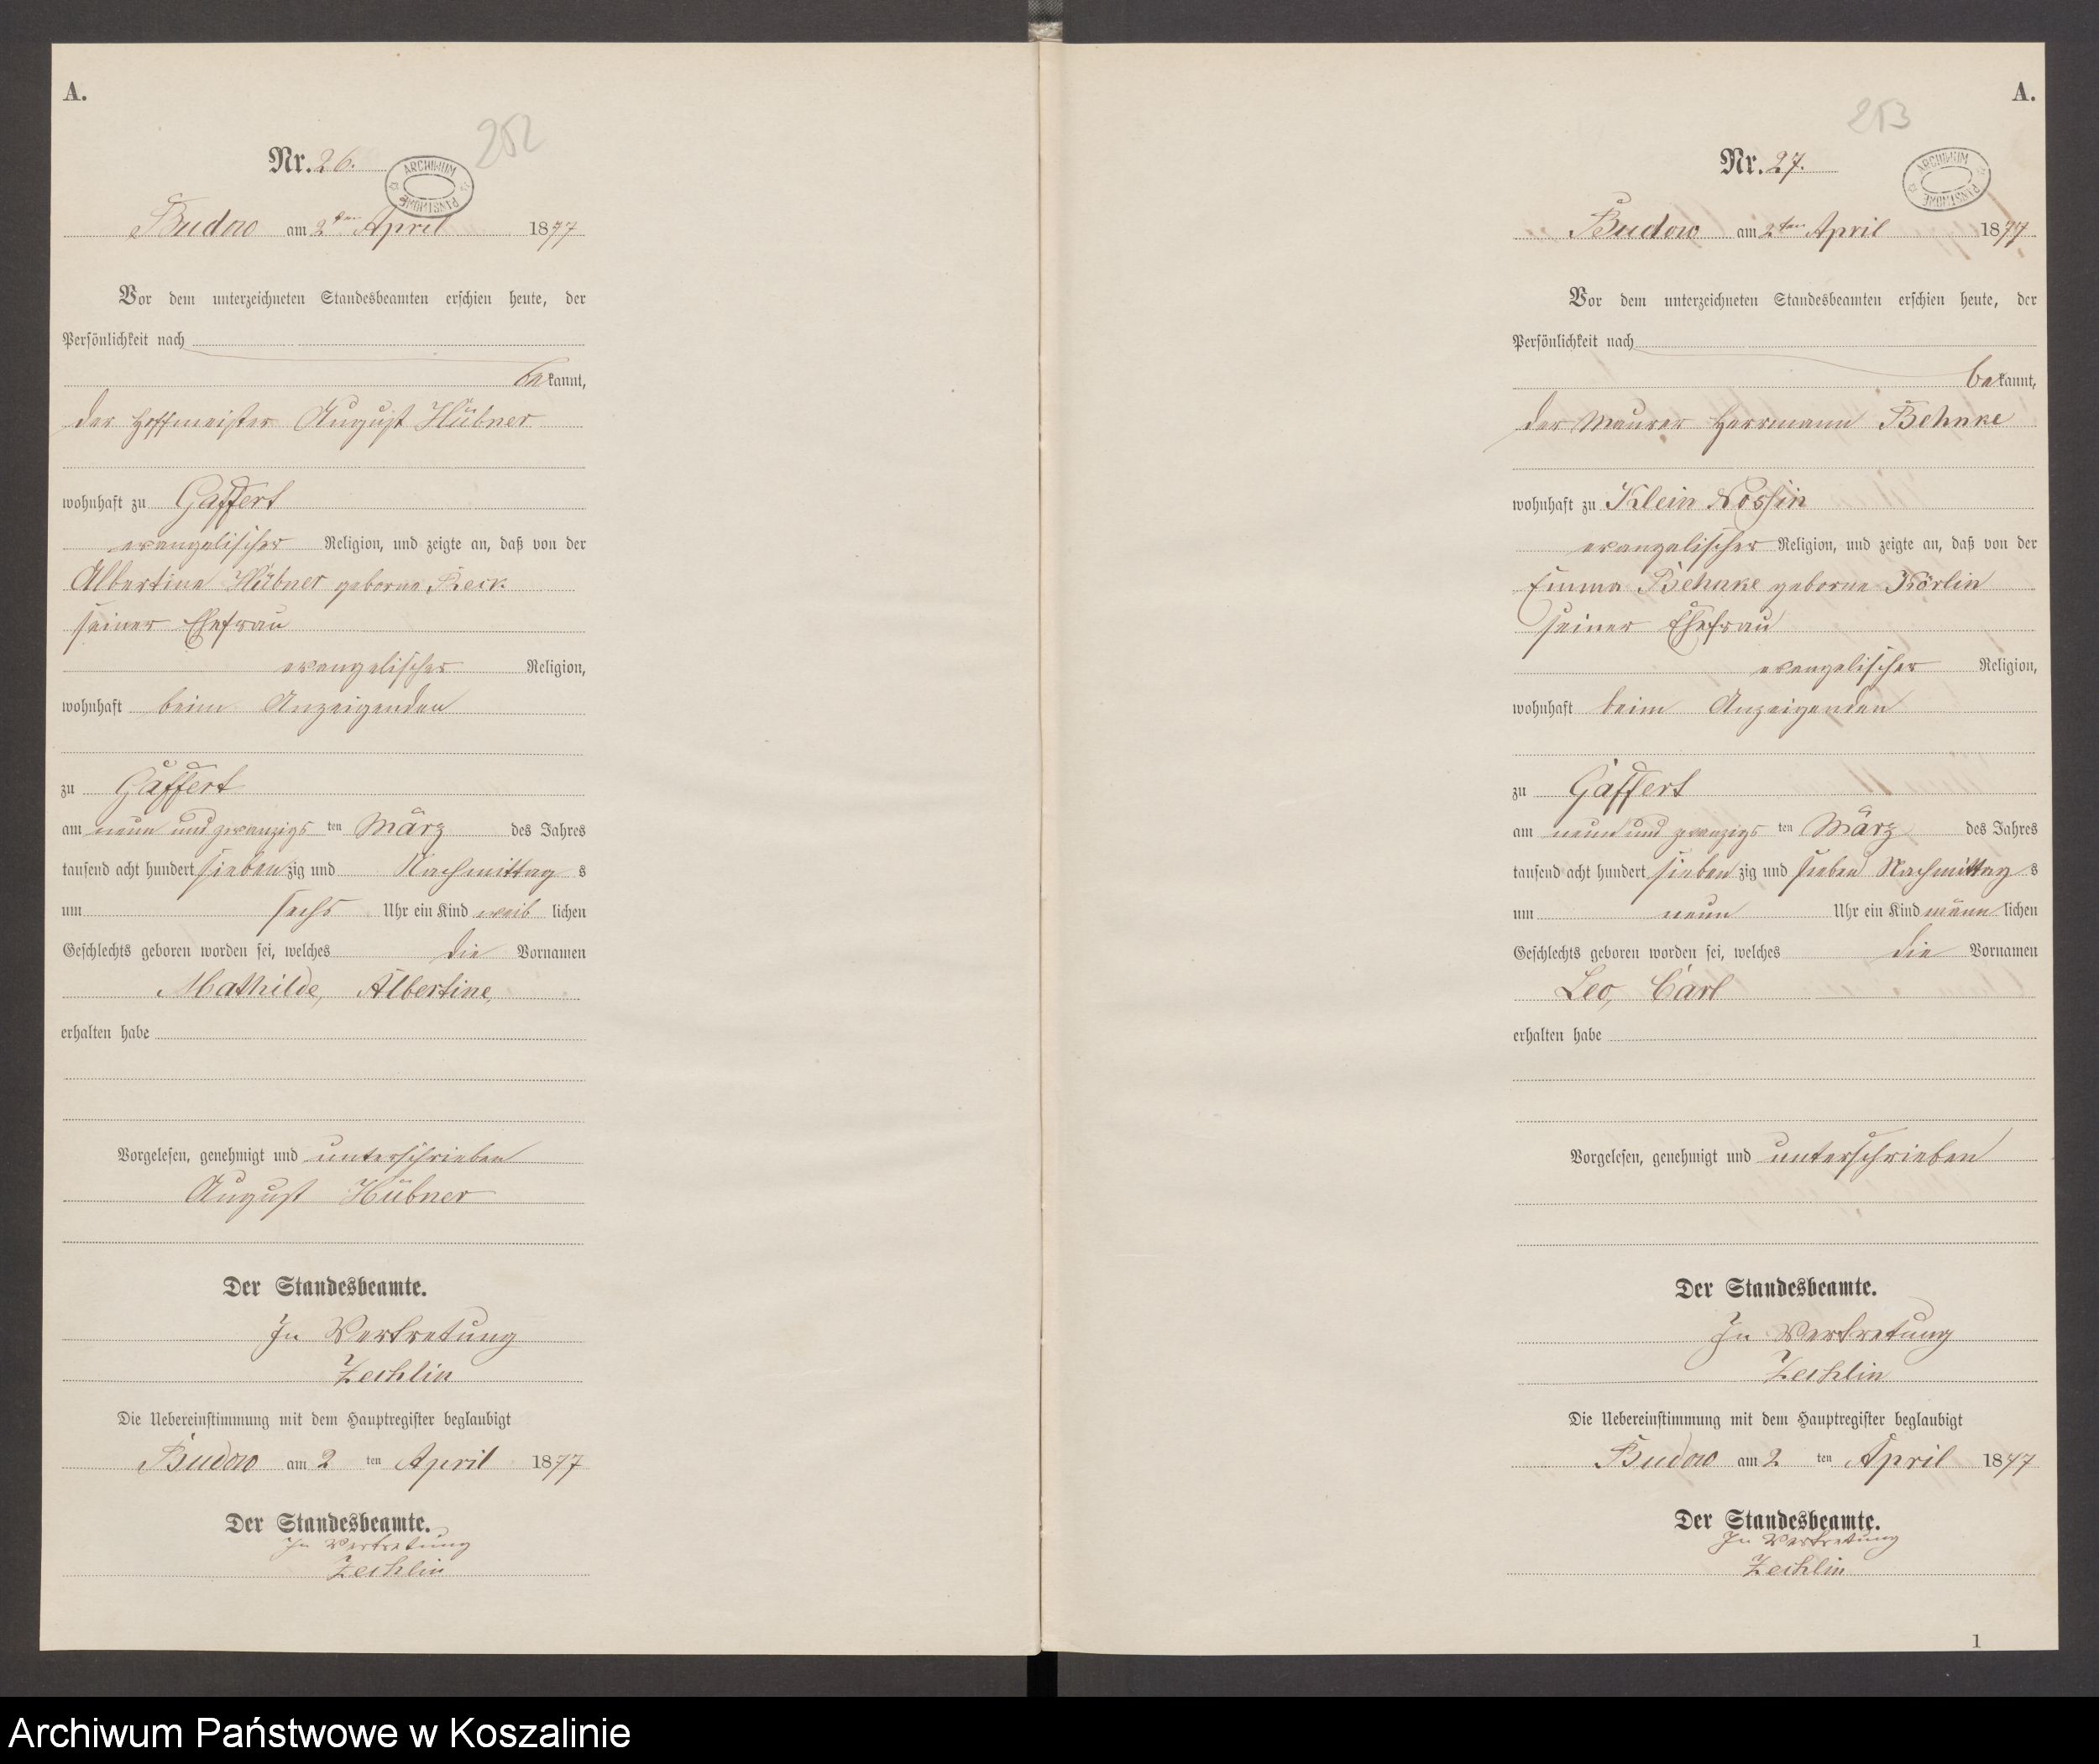 A.
252
Nr. 26.
ARCHIWUM PAŃSTWOWE
Budow am 2ten April 1877
Vor dem unterzeichneten Standesbeamten erschien heute, der
Persönlichkeit nach
bekannt,
der Hoffmeister August Hübner
wohnhaft zu Gaffert
evangelischer Religion, und zeigte an, daß von der
Albertine Hübner geborne Reck
seiner Ehefrau
evangelischer Religion,
wohnhaft beim Anzeigenden
zu Gaffert
am neun und zwanzigsten März des Jahres
tausend acht hundert siebenzig und Nachmittags
um sechs Uhr ein Kind weiblichen
Geschlechts geboren worden sei, welches die Vornamen
Mathilde, Albertine,
erhalten habe
Vorgelesen, genehmigt und unterschrieben
August Hübner
Der Standesbeamte.
In Vertretung
Zechlin
Die Uebereinstimmung mit dem Hauptregister beglaubigt
Budow am 2 ten April 1877
Der Standesbeamte.
In Vertretung
Zechlin
A.
253
Nr. 27.
ARCHIWUM PAŃSTWOWE
Budow am 2ten April 1877
Vor dem unterzeichneten Standesbeamten erschien heute, der
Persönlichkeit nach
bekannt,
der Maurer Herrmann Behnke
wohnhaft zu Klein Nossin
evangelischer Religion, und zeigte an, daß von der
Emma Behnke geborne Körlin
seiner Ehefrau
evangelischer Religion,
wohnhaft beim Anzeigenden
zu Gaffert
am neun und zwanzigsten März des Jahres
tausend acht hundert siebenzig und sieben Nachmittags
um neun Uhr ein Kind männlichen
Geschlechts geboren worden sei, welches die Vornamen
Leo, Carl
erhalten habe
Vorgelesen, genehmigt und unterschrieben
Der Standesbeamte.
In Vertretung
Zechlin
Die Uebereinstimmung mit dem Hauptregister beglaubigt
Budow am 2 ten April 1877
Der Standesbeamte.
In Vertretung
Zechlin
1
Archiwum Państwowe w Koszalinie